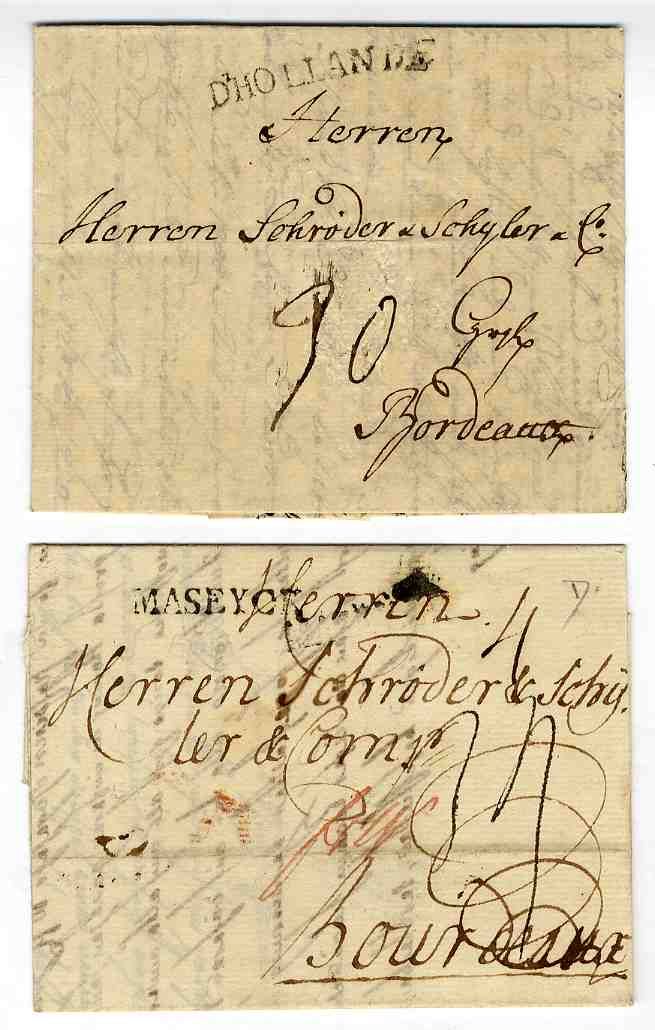 D'HOLLANDE
Herren
Herren Schrøder & Schyler & Co.
30
Bordeaux.
MASEYCK
Herren
4
D.
Herren Schrøder & Schÿ-
ler & Comp
Bourdeaux